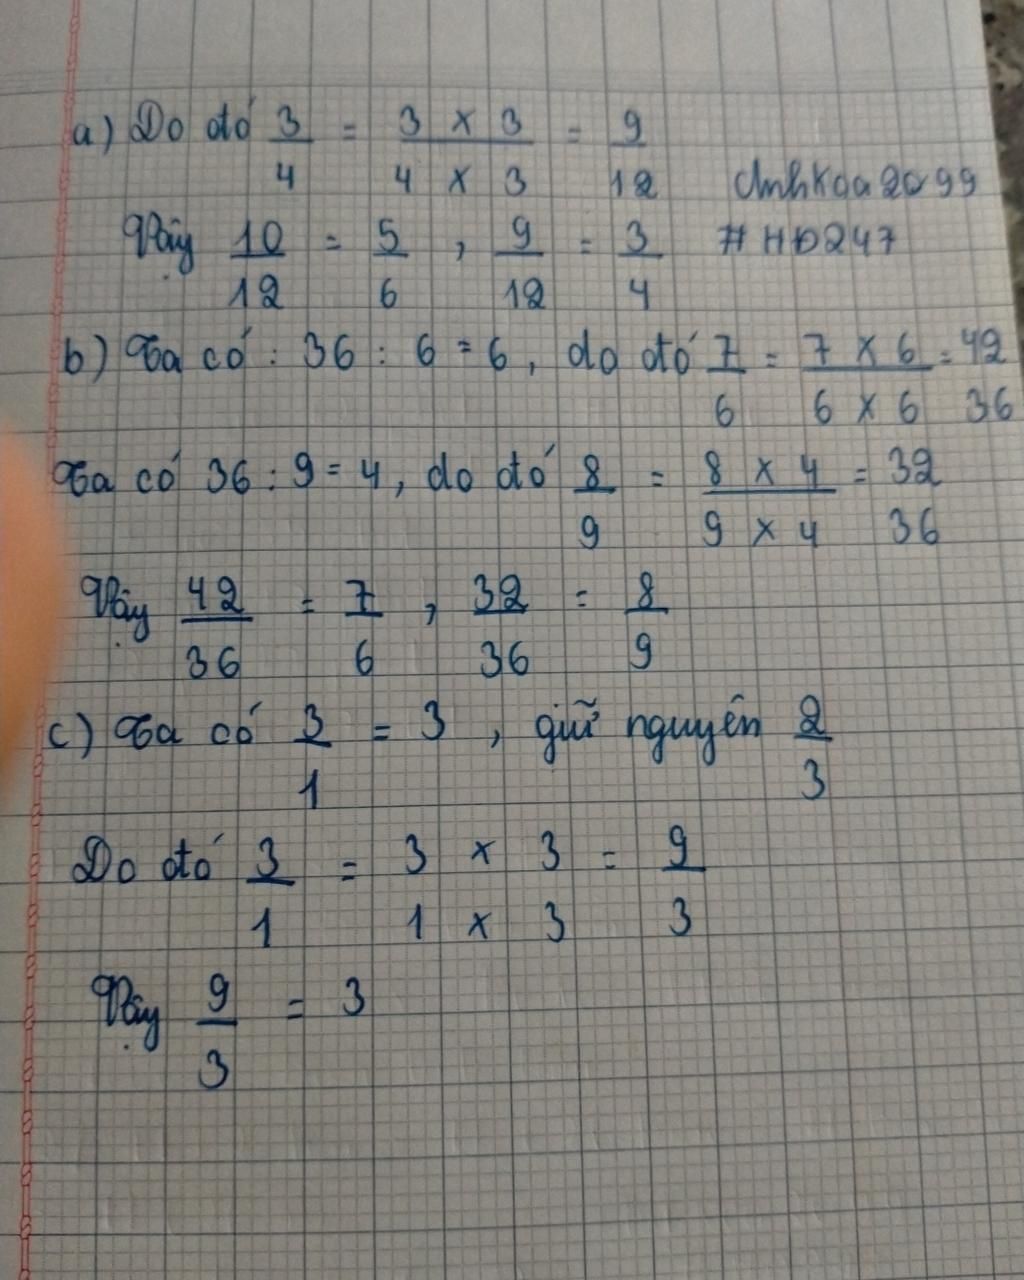 a) Do đó 3/4 = 3 x 3 / 4 x 3 = 9/12
AnhKoa2099
Vậy 10/12 = 5/6 , 9/12 = 3/4 #HD247
b) Ta có : 36 : 6 = 6, do đó 7/6 = 7 x 6 / 6 x 6 = 42/36
Ta có 36 : 9 = 4, do đó 8/9 = 8 x 4 / 9 x 4 = 32/36
Vậy 42/36 = 7/6 , 32/36 = 8/9
c) Ta có 3/1 = 3 , giữ nguyên 2/3
Do đó 3/1 = 3 x 3 / 1 x 3 = 9/3
Vậy 9/3 = 3